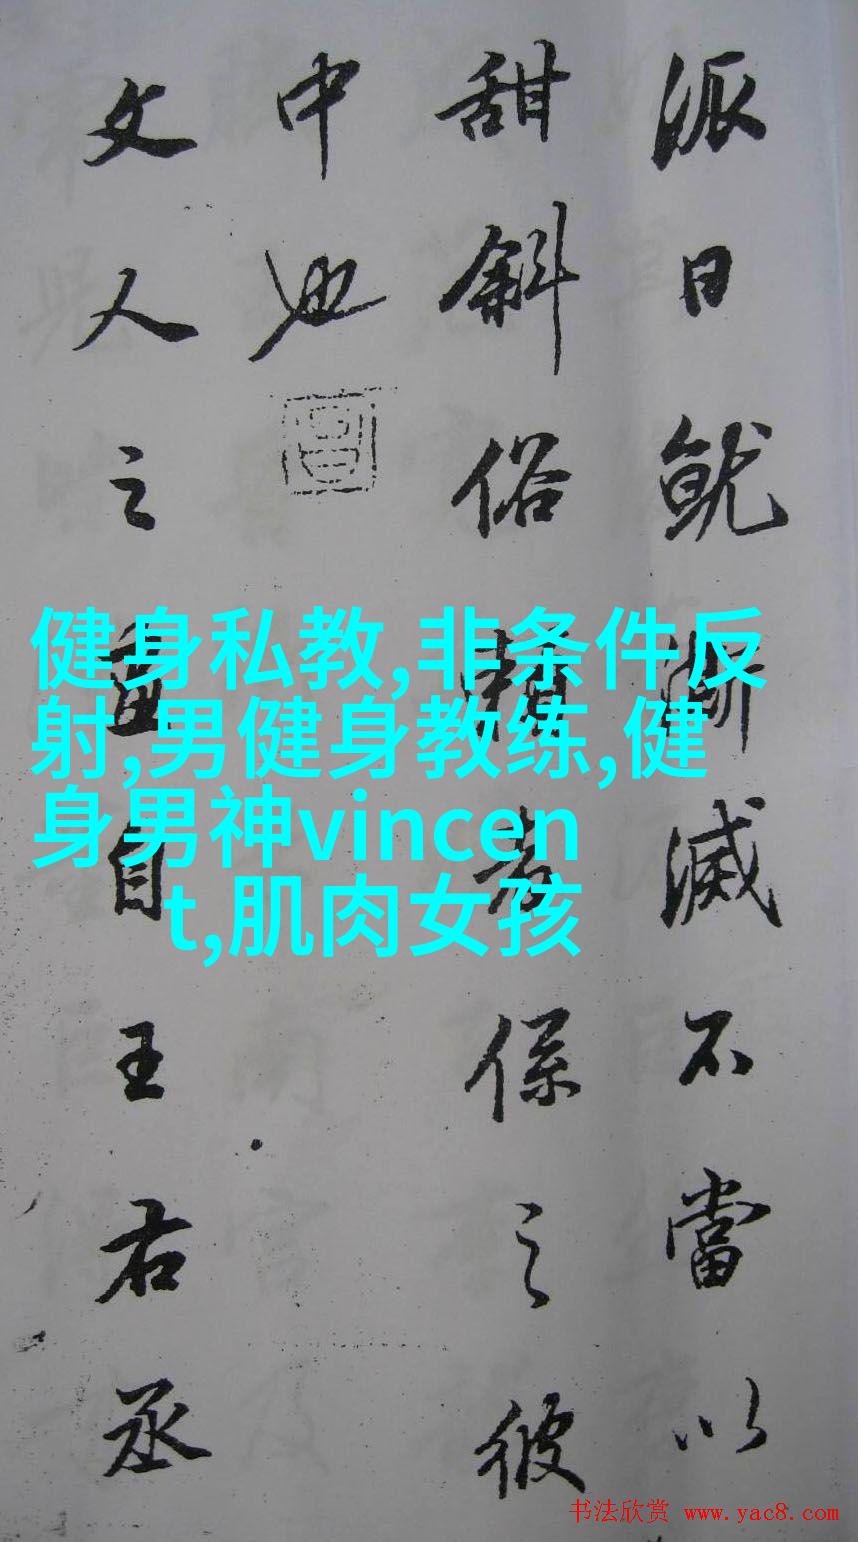 派日就漸滅不當以
甜斜俗賴者係之彼
中也
文人之畫自王右丞
健身私教,非条件反
射,男健身教练,健
身男神vincen
t,肌肉女孩
书法欣赏 www.yac8.com